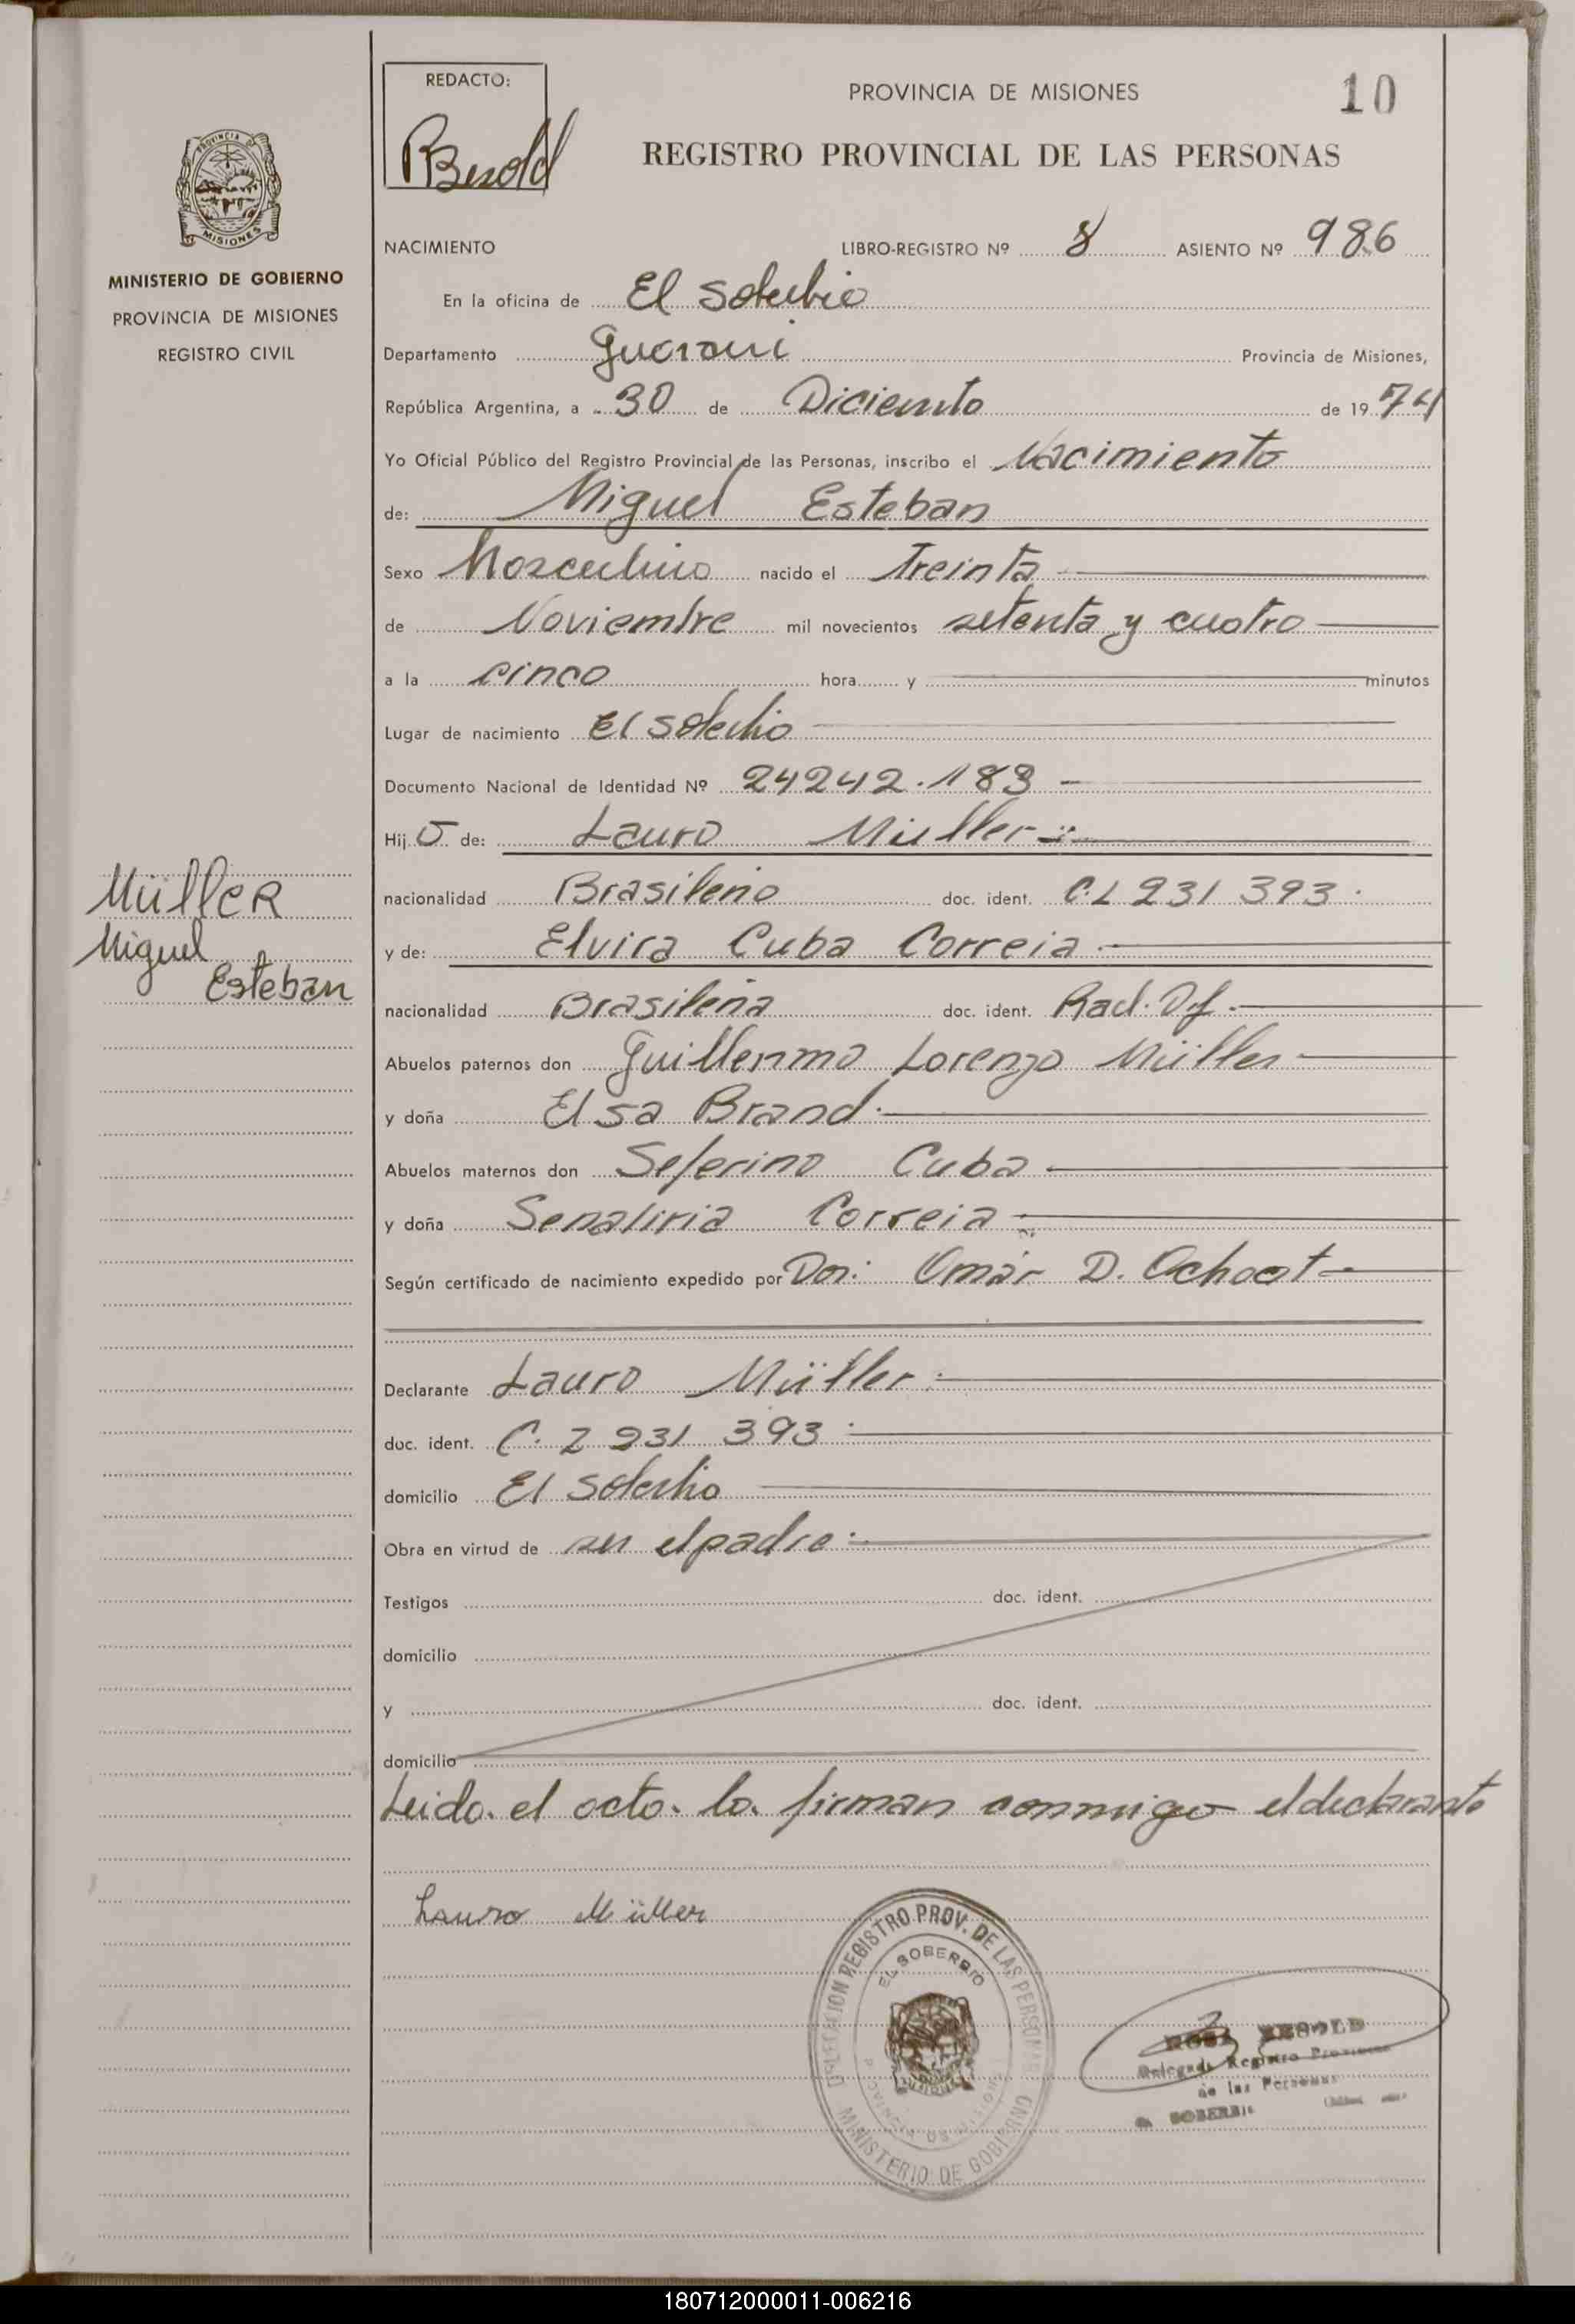 REDACTO:
Besold
PROVINCIA DE MISIONES
10
REGISTRO PROVINCIAL DE LAS PERSONAS
PROVINCIA DE
MISIONES
MINISTERIO DE GOBIERNO
PROVINCIA DE MISIONES
REGISTRO CIVIL
NACIMIENTO LIBRO-REGISTRO Nº 8 ASIENTO Nº 986
En la oficina de El Soberbio
Departamento Guarani Provincia de Misiones,
República Argentina, a 30 de Diciembre de 1974
Yo Oficial Público del Registro Provincial de las Personas, inscribo el Nacimiento
de: Miguel Esteban
Sexo Masculino nacido el Treinta
de Noviembre mil novecientos setenta y cuatro
a la cinco hora y minutos
Lugar de nacimiento El Soberbio
Documento Nacional de Identidad Nº 24242.183
Hij o de: Lauro Müller
Müller
Miguel
Esteban
nacionalidad Brasileño doc. ident. C.I 231 393
y de: Elvira Cuba Correia
nacionalidad Brasileña doc. ident. Rad. Def.
Abuelos paternos don Guillermo Lorenzo Müller
y doña Elsa Brand
Abuelos maternos don Seferino Cuba
y doña Senaliria Correia
Según certificado de nacimiento expedido por Don: Omar D. Ochoat
Declarante Lauro Müller
doc. ident. C. I 231 393
domicilio El Soberbio
Obra en virtud de ser el padre
Testigos doc. ident.
domicilio
y doc. ident.
domicilio
Leida el acta la firman conmigo el declarante
Lauro Müller
DELEGACION REGISTRO PROV. DE LAS PERSONAS
EL SOBERBIO
PROVINCIA DE MISIONES
MINISTERIO DE GOBIERNO
ROSA BESOLD
Delegada Registro Provincial
de las Personas
EL SOBERBIO
180712000011-006216